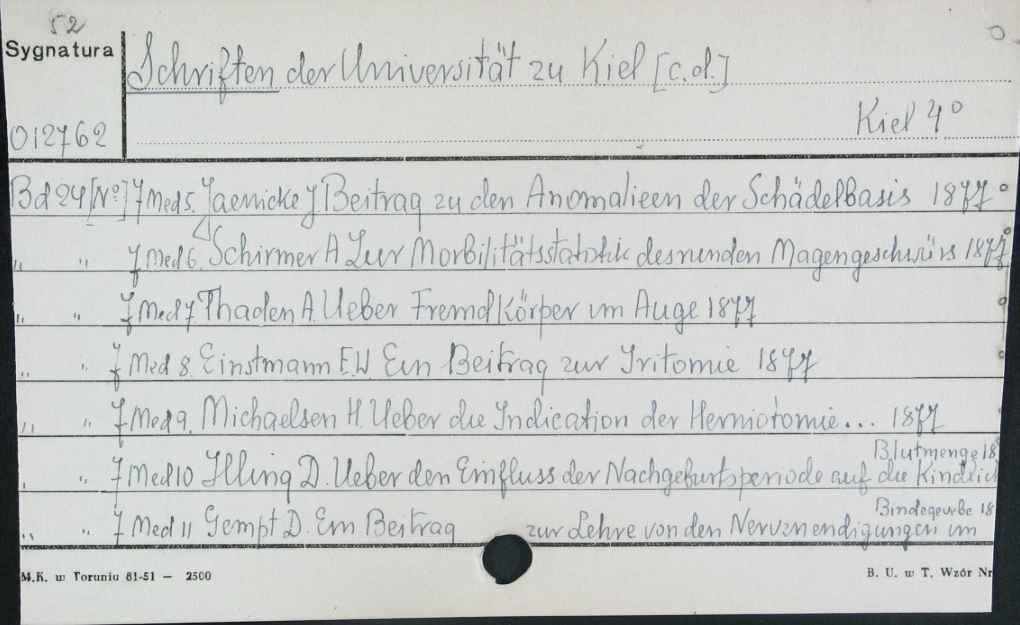 52
Sygnatura
Schriften der Universität zu Kiel [c.d.]
012762
Kiel 4°
Bd 24 [N°] 7 Med 5. Jaenicke J Beitrag zu den Anomalieen der Schädelbasis 1877
" " 7 Med 6. Schirmer A Zur Morbilitätsstatistik des runden Magengeschwürs 1877
" " 7 Med 7 Thaden A. Ueber Fremdkörper im Auge 1877
" " 7 Med 8. Einstmann E.W. Ein Beitrag zur Iritomie 1877
" " 7 Med 9. Michaelsen H. Ueber die Indication der Herniotomie... 1877
Blutmenge 18
" " 7 Med 10 Illing D. Ueber den Einfluss der Nachgeburtsperiode auf die Kindlich
Bindegewebe 18
" " 7 Med 11 Gempt D. Ein Beitrag zur Lehre von den Nervenendigungen im
M.K. w Toruniu 81-51 — 2500
B. U. w T. Wzór Nr